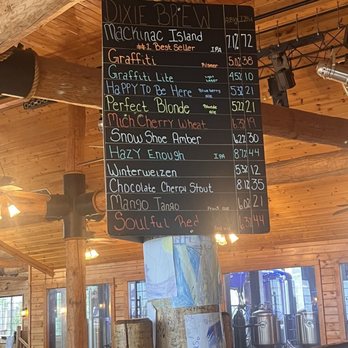 DIXIE BREW
Mackinac Island IPA 7.12 72
#1 Best Seller
Graffiti Pilsner 5.02 38
Graffiti Lite 4.52 10
Happy To Be Here Blueberry Ale 5.32
Perfect Blonde Blonde Ale 5.22 21
Mich Cherry Wheat
Snow Shoe Amber 6.22 30
Hazy Enough IPA 44
Winterweizen 12
Chocolate Cherry Stout 8.12 35
Mango Tango 6.02 21
Soulful Red 44